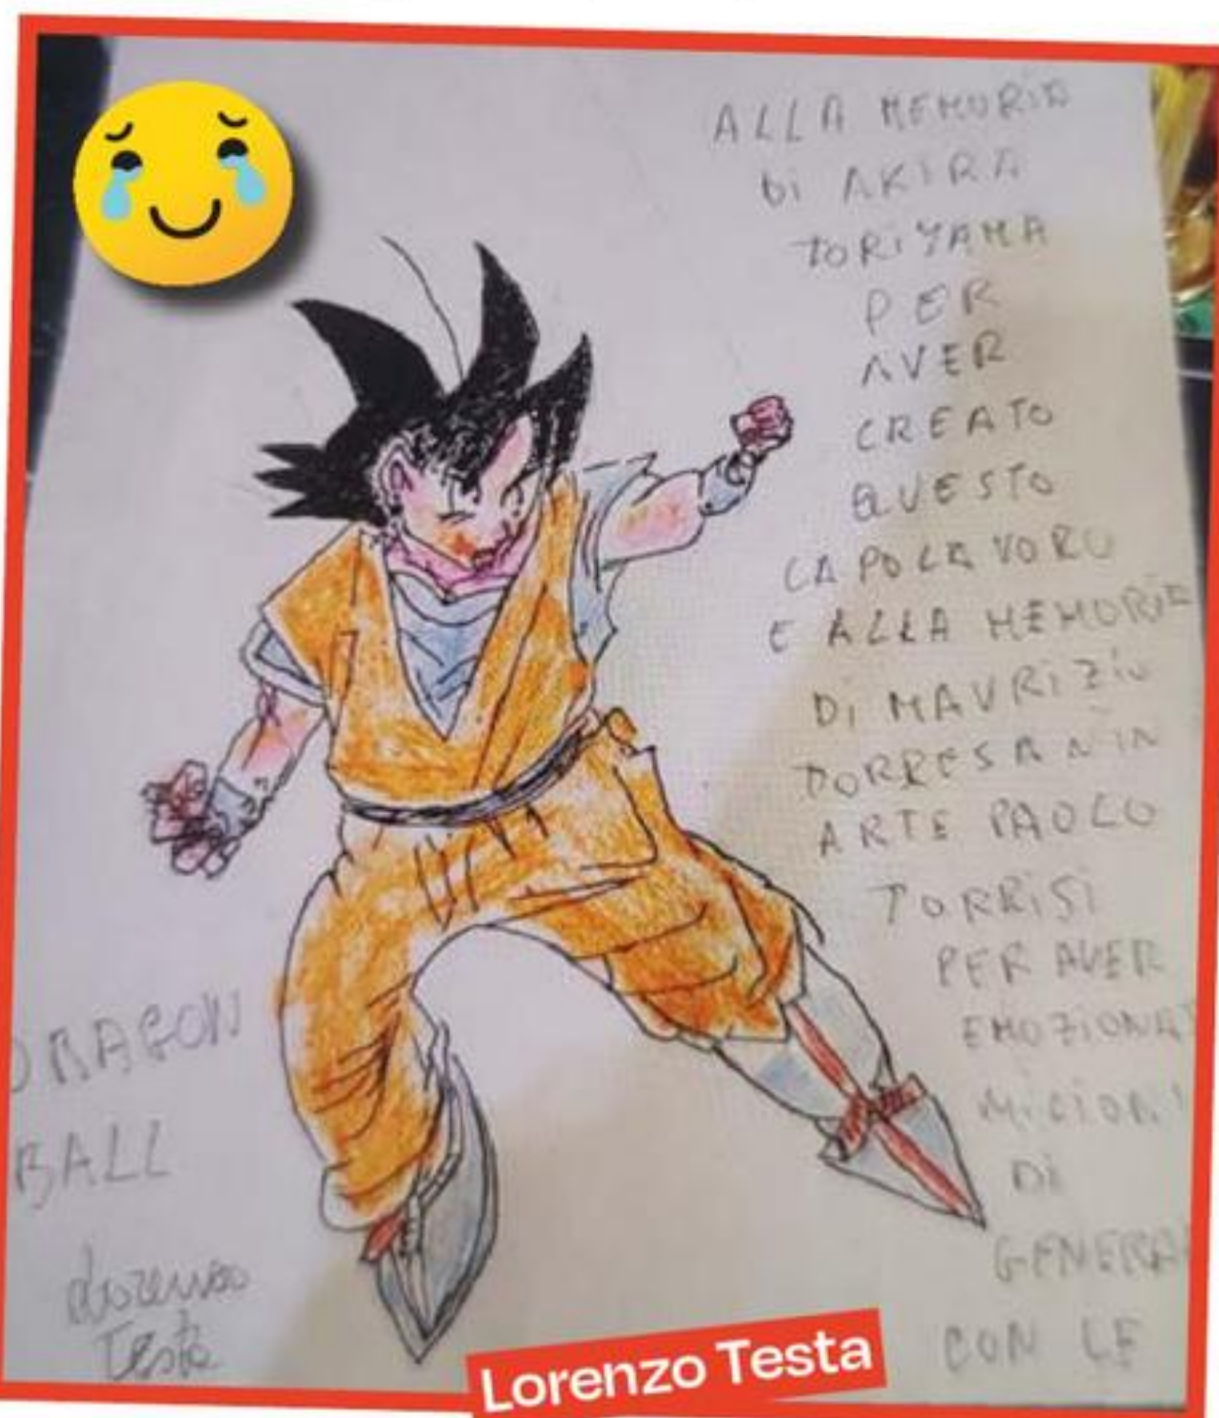 ALLA MEMORIA
Di AKIRA
TORIYAMA
PER
AVER
CREATO
QUESTO
CAPOLAVORO
E ALLA MEMORIA
Di MAURIZIO
TORRESAN IN
ARTE PAOLO
TORRISI
PER AVER
EMOZIONAT
MiGLiONI
Di
GENERA
CON LE
DRAGON
BALL
Lorenzo
Testa
Lorenzo Testa